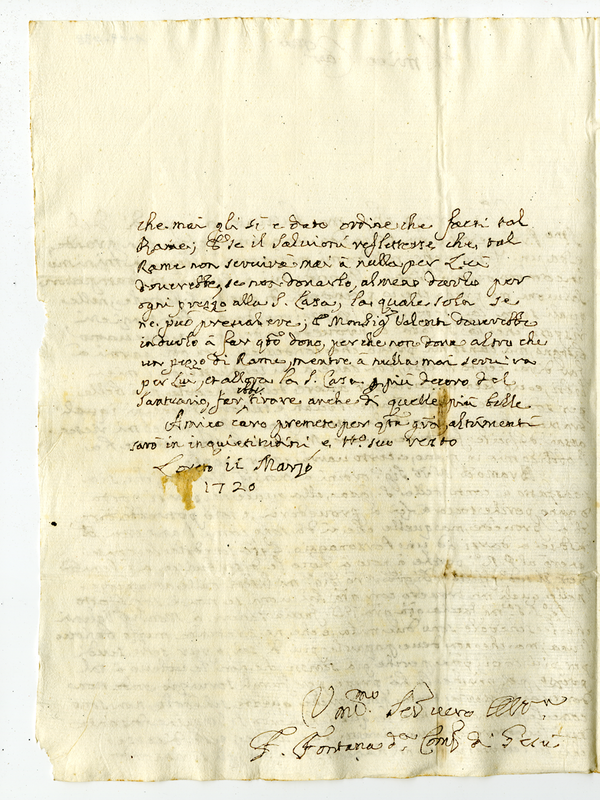 che mai gli si è dato ordine che facci tal
Rame; E se il Salvioni reflettesse che tal
Rame non servirà mai à nulla per Lui
doverebbe, se non donarlo, almeno darlo per
ogni prezzo alla S. Casa, la quale sola se
ne può prevalere; E Monsig.r Valenti doverebbe
indurlo à far q.to dono, perche non dona altro che
un pezzo di Rame, mentre à nulla mai servira
per Lui, et all la S. Casa p più decoro del
Santuario, far tirare anche di quelle più belle
Amico caro premete per q.ta altrimenti
sarò in inquietitudini e tt.o suo resto
Loreto 11 Marzo
1720
V.m.mo Ser. vero
F. Fontana d.a Comp. di Gesù